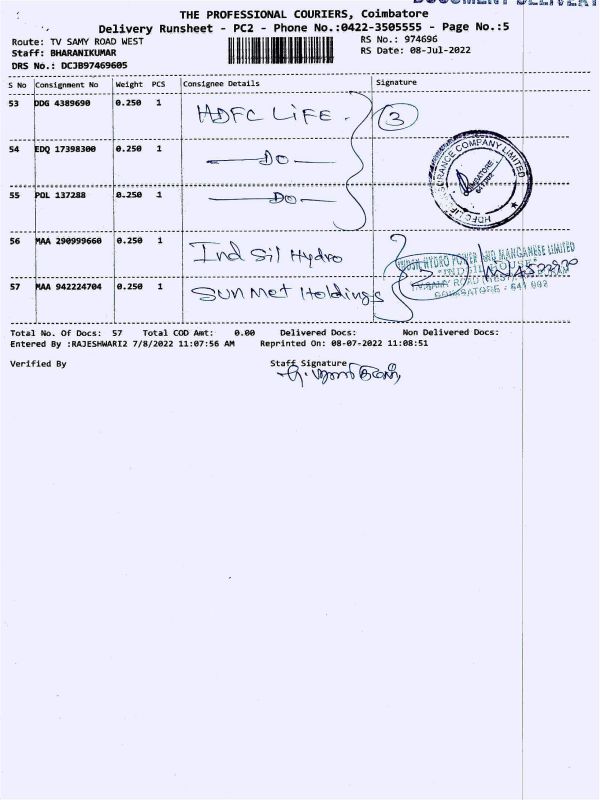 DOCUMENT DELIVERY
THE PROFESSIONAL COURIERS, Coimbatore
Delivery Runsheet - PC2 - Phone No.:0422-3505555 - Page No.:5
Route: TV SAMY ROAD WEST RS No.: 974696
Staff: BHARANIKUMAR RS Date: 08-Jul-2022
DRS No.: DCJB97469605
S No Consignment No Weight PCS Consignee Details Signature
53 DDG 4389690 0.250 1 HDFC LiFE. 3
54 EDQ 17398300 0.250 1 DO
COMPANY LIMITED
COIMBATORE
HDFC LIFE
55 POL 137288 0.250 1 DO
56 MAA 290999660 0.250 1 Ind Sil Hydro
HYDRO POWER AND MANGANESE LIMITED
57 MAA 942224704 0.250 1 Sun Met Holdings
COIMBATORE - 641 002
Total No. Of Docs: 57 Total COD Amt: 0.00 Delivered Docs: Non Delivered Docs:
Entered By :RAJESHWARI2 7/8/2022 11:07:56 AM Reprinted On: 08-07-2022 11:08:51
Verified By Staff Signature